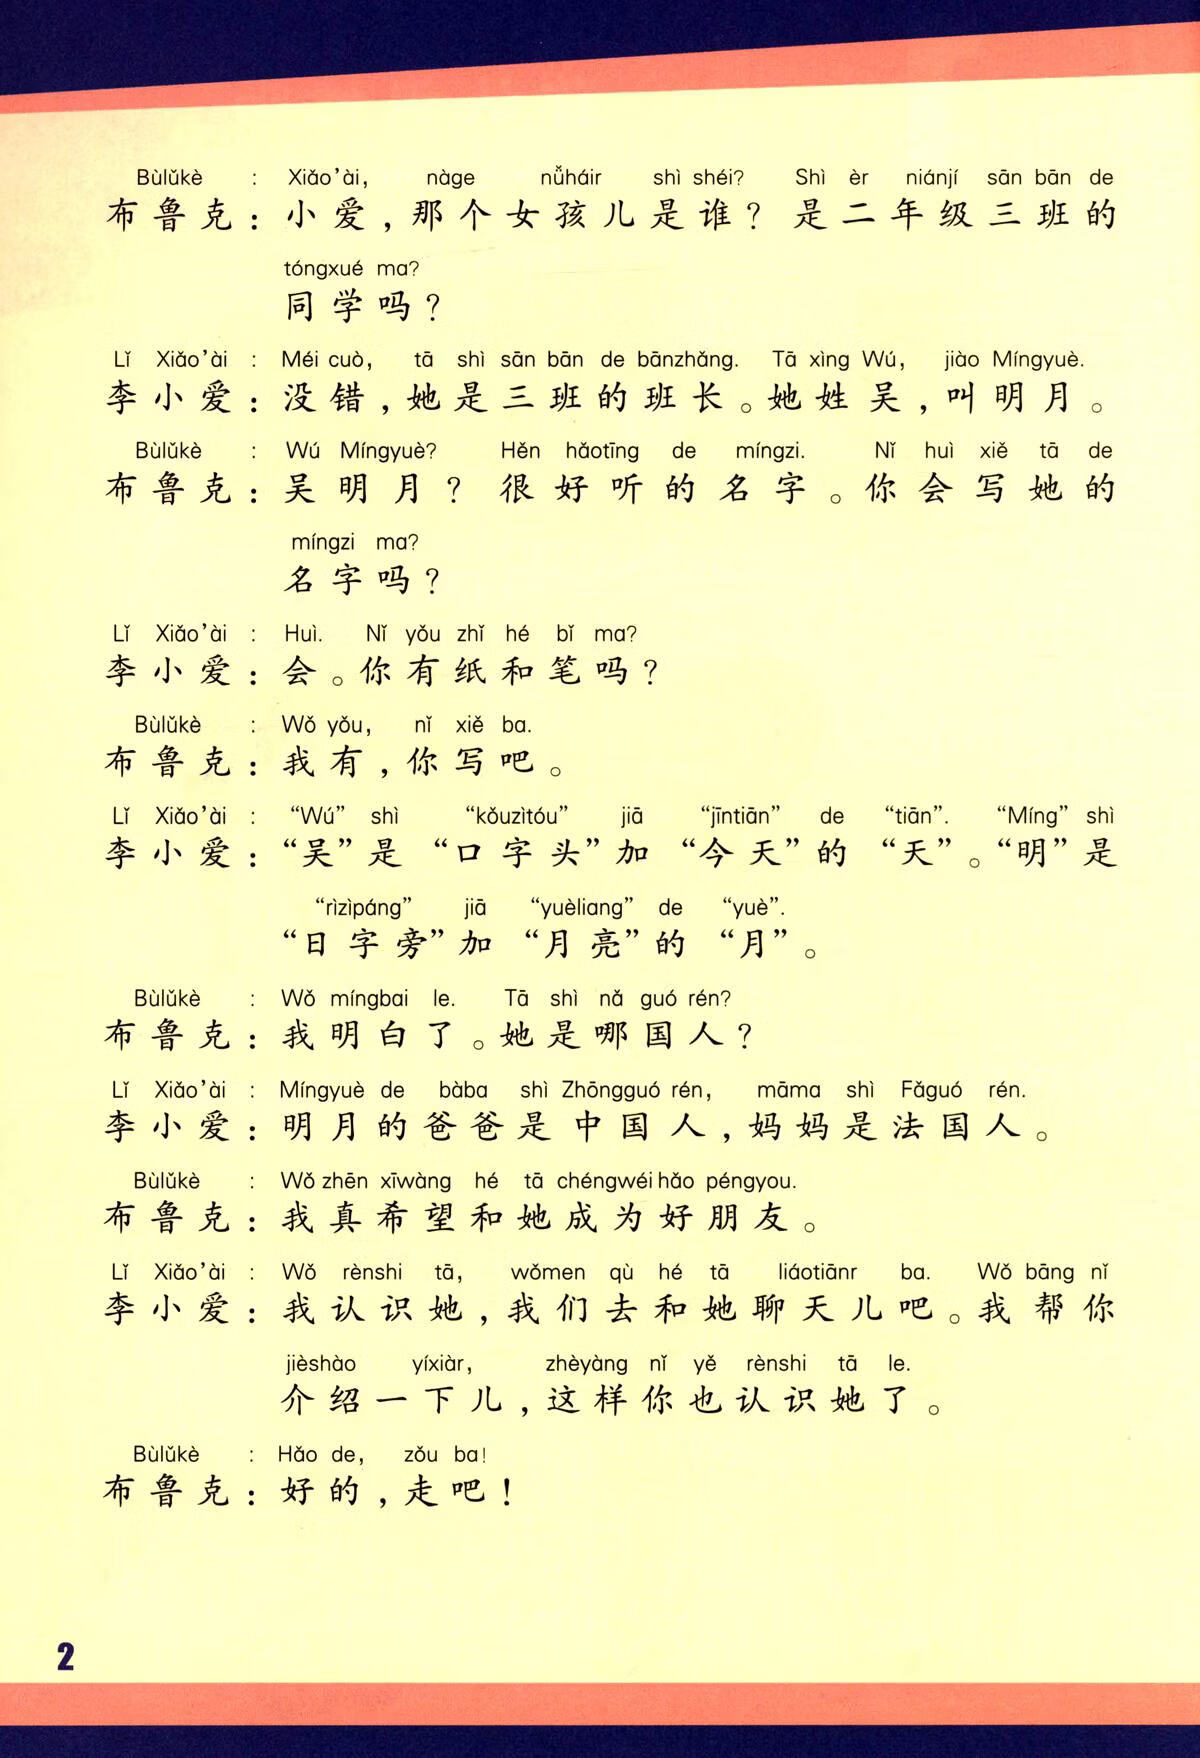 Bùlǔkè : Xiǎo’ài, nàge nǚháir shì shéi? Shì èr niánjí sān bān de
布鲁克：小爱，那个女孩儿是谁？是二年级三班的
tóngxué ma?
同学吗？
Lǐ Xiǎo’ài : Méi cuò, tā shì sān bān de bānzhǎng. Tā xìng Wú, jiào Míngyuè.
李小爱：没错，她是三班的班长。她姓吴，叫明月。
Bùlǔkè : Wú Míngyuè? Hěn hǎotīng de míngzi. Nǐ huì xiě tā de
布鲁克：吴明月？很好听的名字。你会写她的
míngzi ma?
名字吗？
Lǐ Xiǎo’ài : Huì. Nǐ yǒu zhǐ hé bǐ ma?
李小爱：会。你有纸和笔吗？
Bùlǔkè : Wǒ yǒu, nǐ xiě ba.
布鲁克：我有，你写吧。
Lǐ Xiǎo’ài : “Wú” shì “kǒuzìtóu” jiā “jīntiān” de “tiān”. “Míng” shì
李小爱：“吴”是“口字头”加“今天”的“天”。“明”是
“rìzìpáng” jiā “yuèliang” de “yuè”.
“日字旁”加“月亮”的“月”。
Bùlǔkè : Wǒ míngbai le. Tā shì nǎ guó rén?
布鲁克：我明白了。她是哪国人？
Lǐ Xiǎo’ài : Míngyuè de bàba shì Zhōngguó rén, māma shì Fǎguó rén.
李小爱：明月的爸爸是中国人，妈妈是法国人。
Bùlǔkè : Wǒ zhēn xīwàng hé tā chéngwéi hǎo péngyou.
布鲁克：我真希望和她成为好朋友。
Lǐ Xiǎo’ài : Wǒ rènshi tā, wǒmen qù hé tā liáotiānr ba. Wǒ bāng nǐ
李小爱：我认识她，我们去和她聊天儿吧。我帮你
jièshào yíxiàr, zhèyàng nǐ yě rènshi tā le.
介绍一下儿，这样你也认识她了。
Bùlǔkè : Hǎo de, zǒu ba!
布鲁克：好的，走吧！
2